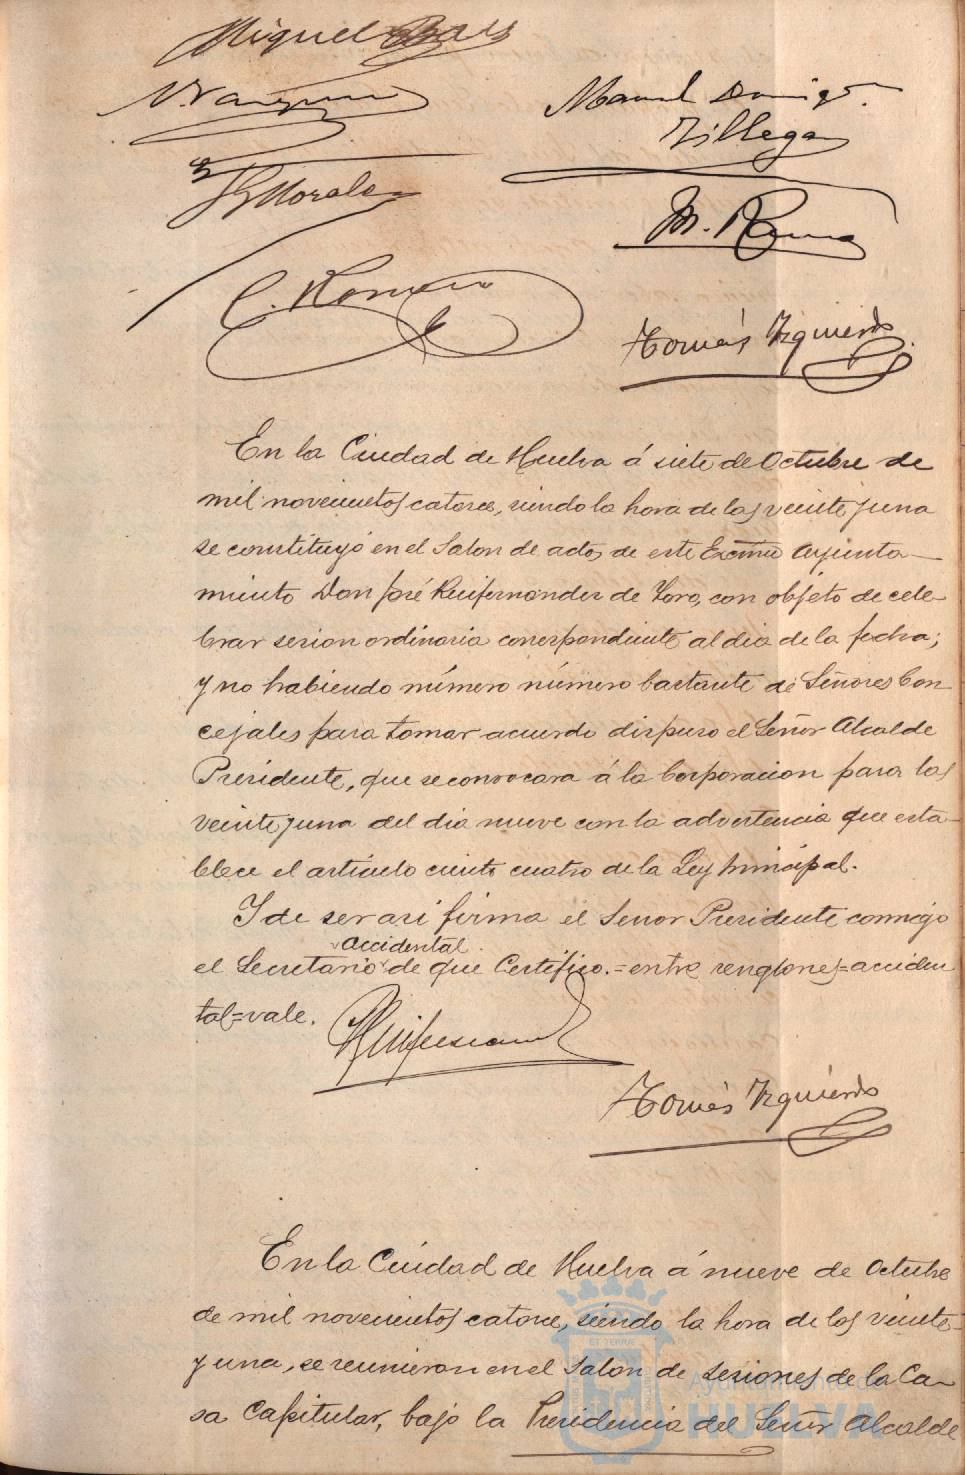 Miguel Báez
V. Vazquez
Manuel Domingz.
Villegas
J. Morales
M. R
C. Romero
Tomás Yzquierdo
En la Ciudad de Huelva á siete de Octubre de
mil novecientos catorce, siendo la hora de las veinte y una
se constituyó en el Salon de actos de este Excmo Ayunta-
miento Don José Ruifernandez de Toro, con objeto de cele-
brar sesion ordinaria correspondiente al dia de la fecha;
y no habiendo número número bastante de Señores Con
cejales para tomar acuerdo dispuso el Señor Alcalde
Presidente, que se convocara á la Corporacion para las
veinte y una del dia nueve con la advertencia que esta-
blece el artículo ciento cuatro de la Ley Minicipal.
Y de ser asi firma el Señor Presidente conmigo
accidental
el Secretario de que Certifico.=entre renglones=acciden
tal=vale.
JRuifernandez
Tomás Yzquierdo
En la Ciudad de Huelva á nueve de Octubre
de mil novecientos catorce, siendo la hora de las veinte
y una, se reunieron en el Salon de sesiones de la Ca-
sa Capitular, bajo la Presidencia del Señor Alcalde
Ayuntamiento de
HUELVA